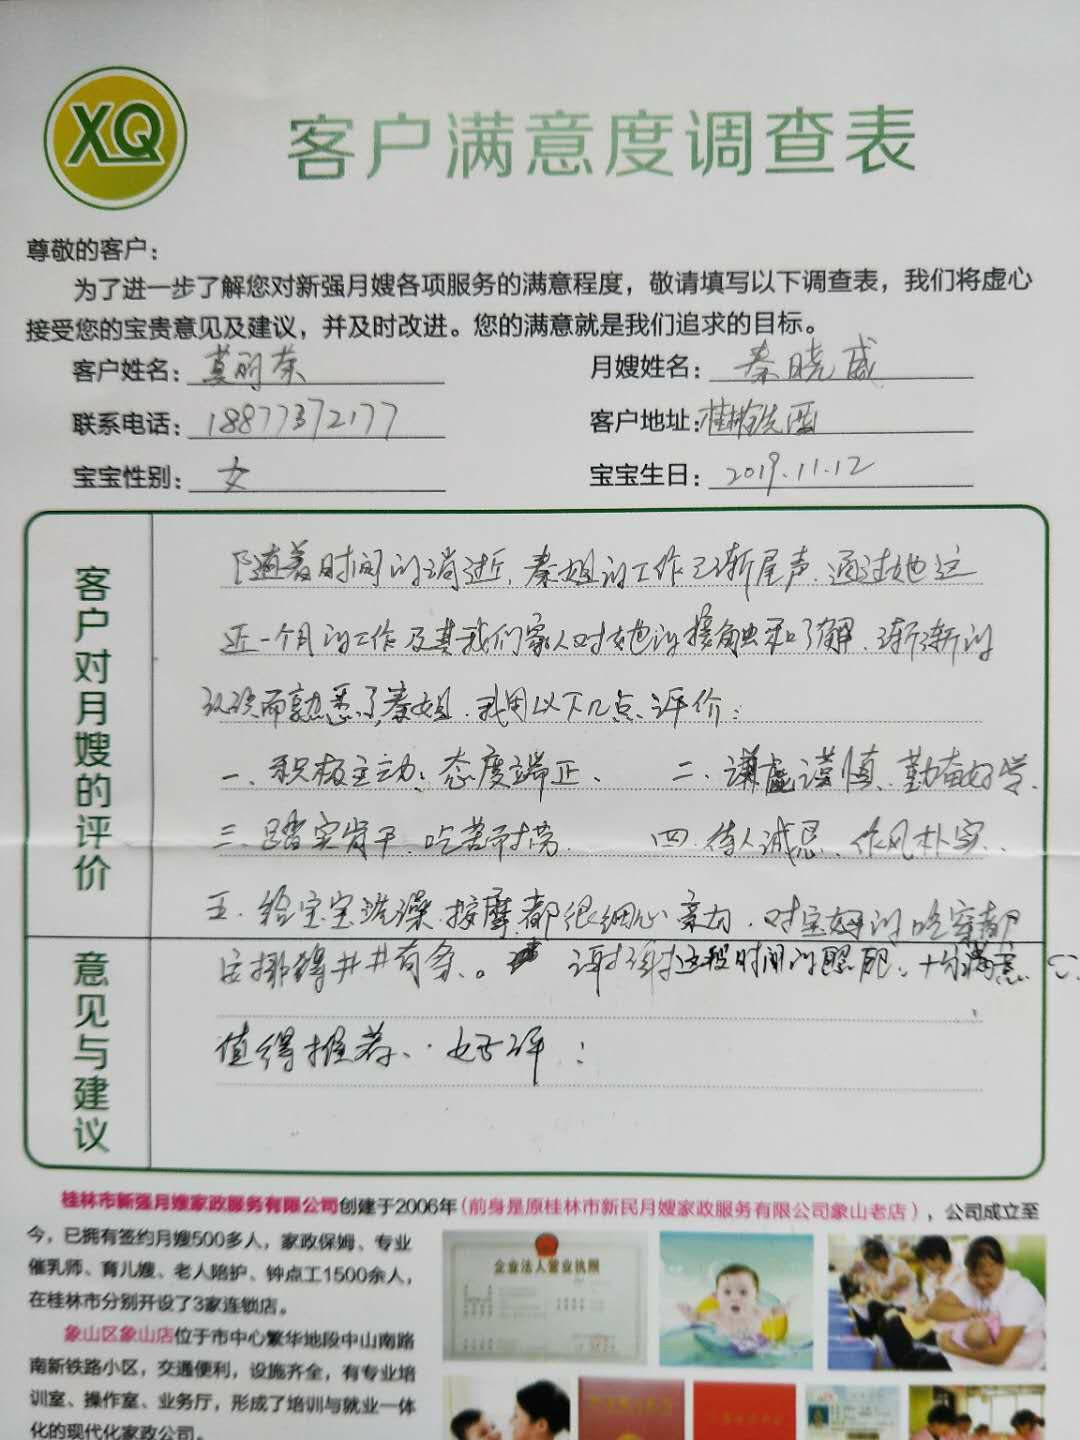 XQ
客户满意度调查表
尊敬的客户：
为了进一步了解您对新强月嫂各项服务的满意程度，敬请填写以下调查表，我们将虚心
接受您的宝贵意见及建议，并及时改进。您的满意就是我们追求的目标。
客户姓名： 莫丽荣 月嫂姓名： 秦晓威
联系电话： 18877372177 客户地址： 桂林
宝宝性别： 女 宝宝生日： 2019.11.12
客户对月嫂的评价
随着时间的消逝，秦姐的工作已渐尾声，通过她这
近一个月的工作及其我们家人对她的接触和了解，渐渐的
而熟悉了秦姐，我用以下几点评价：
一、积极主动；态度端正、 二、谦虚谨慎、勤奋好学、
三、踏实肯干、吃苦耐劳、 四、待人诚恳、作风朴实、
五、给宝宝洗澡、按摩、都很细心亲切，对宝妈的吃穿都
意见与建议
安排得井井有条、。 谢谢这段时间的照顾、十分满意
值得推荐、好评：
桂林市新强月嫂家政服务有限公司创建于2006年（前身是原桂林市新民月嫂家政服务有限公司象山老店），公司成立至
今，已拥有签约月嫂500多人，家政保姆、专业
催乳师、育儿嫂、老人陪护、钟点工1500余人，
在桂林市分别开设了3家连锁店。
象山区象山店位于市中心繁华地段中山南路
南新铁路小区，交通便利，设施齐全，有专业培
训室、操作室、业务厅，形成了培训与就业一体
化的现代化家政公司。
企业法人营业执照